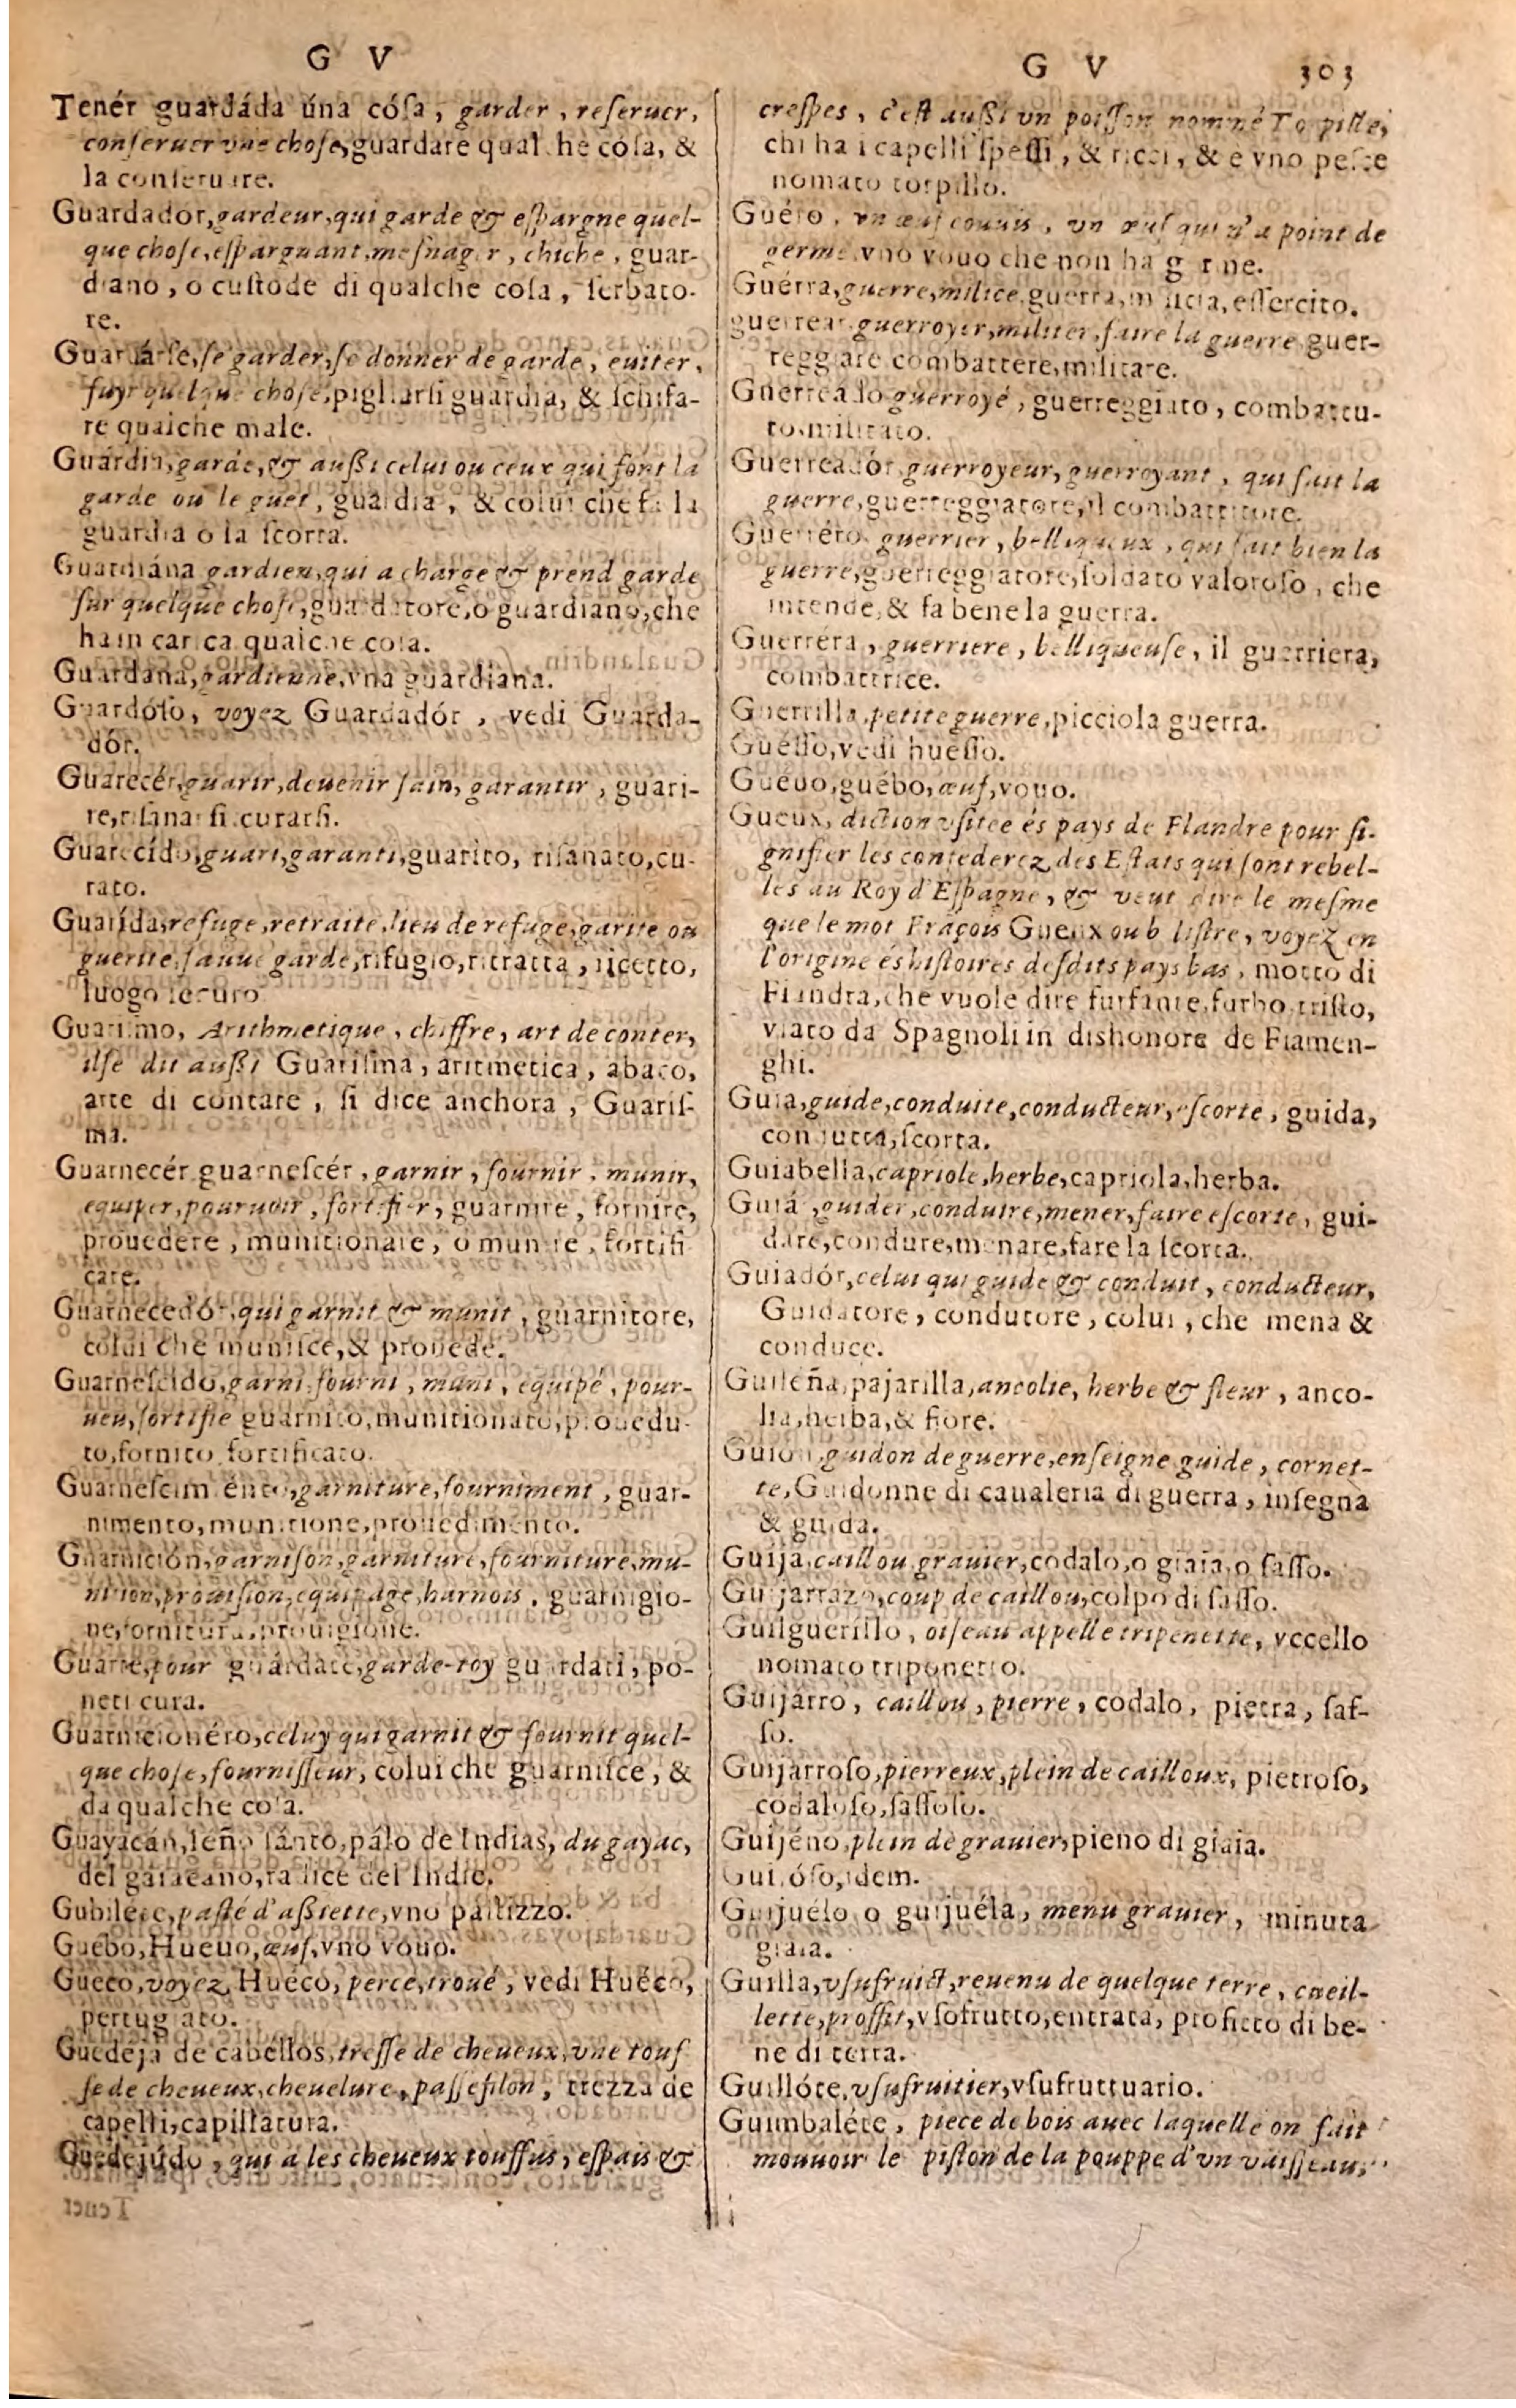 G V
Tenér guardáda úna cóſa, garder, reſeruer,
conſeruer vne choſe, guardare qualche cóſa, &
la conſeruare.
Guardador, gardeur, qui garde & eſpargne quel-
que choſe, eſparguant, meſnager, chiche, guar-
diano, o cuſtode di qualche coſa, ſerbato-
re.
Guardárſe, ſe garder, ſe donner de garde, euiter,
fuyr quelque choſe, pigliarſi guardia, & ſchifa-
re qualche male.
Guárdia, garde, & außi celui ou ceux qui font la
garde ou le guet, guardia, & colui che fa la
guardia o la ſcorta.
Guardiána gardien, qui a charge & prend garde
ſur quelque choſe, guardatore, o guardiano, che
ha in carica qualche coſa.
Guardana, gardienne, vna guardiana.
Guardóſo, voyez Guardadór, vedi Guarda-
dór.
Guarecér, guarir, deuenir ſain, garantir, guari-
re, riſanarſi curarſi.
Guarecído, guari, garanti, guarito, riſanato, cu-
rato.
Guarída, refuge, retraite, lieu de refuge, garite ou
guerite, ſauue garde, rifugio, ritratta, ricetto,
luogo ſecuro
Guariſmo, Arithmetique, chiffre, art de conter,
ilſe dit außi Guariſma, aritmetica, abaco,
arte di contare, ſi dice anchora, Guariſ-
ma.
Guarnecér guarneſcér, garnir, fournir, munir,
equiper, pouruoir, fortifier, guarnire, fornire,
prouedere, munitionare, o munire, fortifi
care.
Guarnecedór, qui garnit & munit, guarnitore,
colui che muniſce, & prouede.
Guarneſcido, garni, fourni, muni, equipé, pour-
ueu, fortifie guarnito, munitionato, prouedu-
to, fornito fortificato.
Guarneſcimiento, garniture, fourniment, guar-
nimento, munitione, prouedimento.
Guarnición, garniſon, garniture, fourniture, mu-
nition, prouiſion, equipage, harnois, guarnigio-
ne, fornitura, prouigione.
Guarte, pour guárdate, garde-toy guardati, po-
neti cura.
Guarnicionéro, celuy qui garnit & fournit quel-
que choſe, fourniſſeur, colui che guarniſce, &
da qualche coſa.
Guayacán, leño ſánto, pálo de Indias, du gayac,
del gaiacano, radice del Indie.
Gubiléte, paſté d'aßiette, vno paſtizzo.
Guébo, Hueuo, œuf, vno vouo.
Gueco, voyez Huéco, perce, troué, vedi Huéco,
pertugiato.
Guedeja de cabellos, treſſe de cheueux, vne touf
fe de cheueux, cheuelure, paſſefilon, trezza de
capelli, capillatura.
Guedejúdo, qui a les cheueux touffus, eſpais &
G V 303
creſpes, c'eſt außi vn poiſſon nommé Torpille,
chi ha i capelli ſpeſſi, & ricci, & e vno peſce
nomato torpillo.
Guéro, vn œuf couuis, vn œuf qui n'a point de
germe, vno vouo che non ha germe.
Guérra, guerre, milice, guerra, militia, eſſercito.
guerrear guerroyer, militer, faire la guerre guer-
reggiare combattere, militare.
Guerreado guerroyé, guerreggiato, combattu-
to, militato.
Guerreadór, guerroyeur, guerroyant, qui fait la
guerre, guerreggiatore, il combattitore.
Guerréro guerrier, belliqueux, qui fait bien la
guerre, guerreggiatore, ſoldato valoroſo, che
intende, & fa bene la guerra.
Guerréra, guerriere, belliqueuſe, il guerriera,
combattrice.
Guerrilla, petite guerre, picciola guerra.
Guéſſo, vedi hueſſo.
Gueuo, guébo, œuf, vouo.
Gueux, diction vſitee és pays de Flandre pour ſi-
gnifier les confederez des Eſtats qui ſont rebel-
les au Roy d'Eſpagne, & veut dire le meſme
que le mot Fraçois Gueux ou beliſtre, voyez en
l'origine és hiſtoires deſdits pays bas, motto di
Fiandra, che vuole dire furfante, furbo, triſto,
vſato da Spagnoli in dishonore de Fiamen-
ghi.
Guia, guide, conduite, conducteur, eſcorte, guida,
condutta, ſcorta.
Guiabella, capriole, herbe, capriola, herba.
Guiá, guider, conduire, mener, faire eſcorte, gui-
dare, condure, menare, fare la ſcorta.
Guiadór, celui qui guide & conduit, conducteur,
Guidatore, condutore, colui, che mena &
conduce.
Guileña, pajarilla, ancolie, herbe & fleur, anco-
lia, herba, & fiore.
Guion, guidon de guerre, enſeigne guide, cornet-
te, Guidonne di caualeria di guerra, inſegna
& guida.
Guija, caillou grauier, codalo, o giaia, o ſaſſo.
Guijarrazo, coup de caillou, colpo di ſaſſo.
Guilguerillo, oiſeau appelle tripenette, vccello
nomato triponetto.
Guijarro, caillou, pierre, codalo, pietra, ſaſ-
ſo.
Guijarroſo, pierreux, plein de cailloux, pietroſo,
codaloſo, ſaſſoſo.
Guijéno, plein de grauier, pieno di giaia.
Guijóſo, idem.
Guijuélo o guijuéla, menu grauier, minuta
giaia.
Guilla, vſufruict, reuenu de quelque terre, cueil-
lette, proffit, vſofrutto, entrata, profitto di be-
ne di terra.
Guillóte, vſufruitier, vſufruttuario.
Guimbaléte, piece de bois auec laquelle on fait
mouuoir le piſton de la pouppe d'vn vaiſſeau,